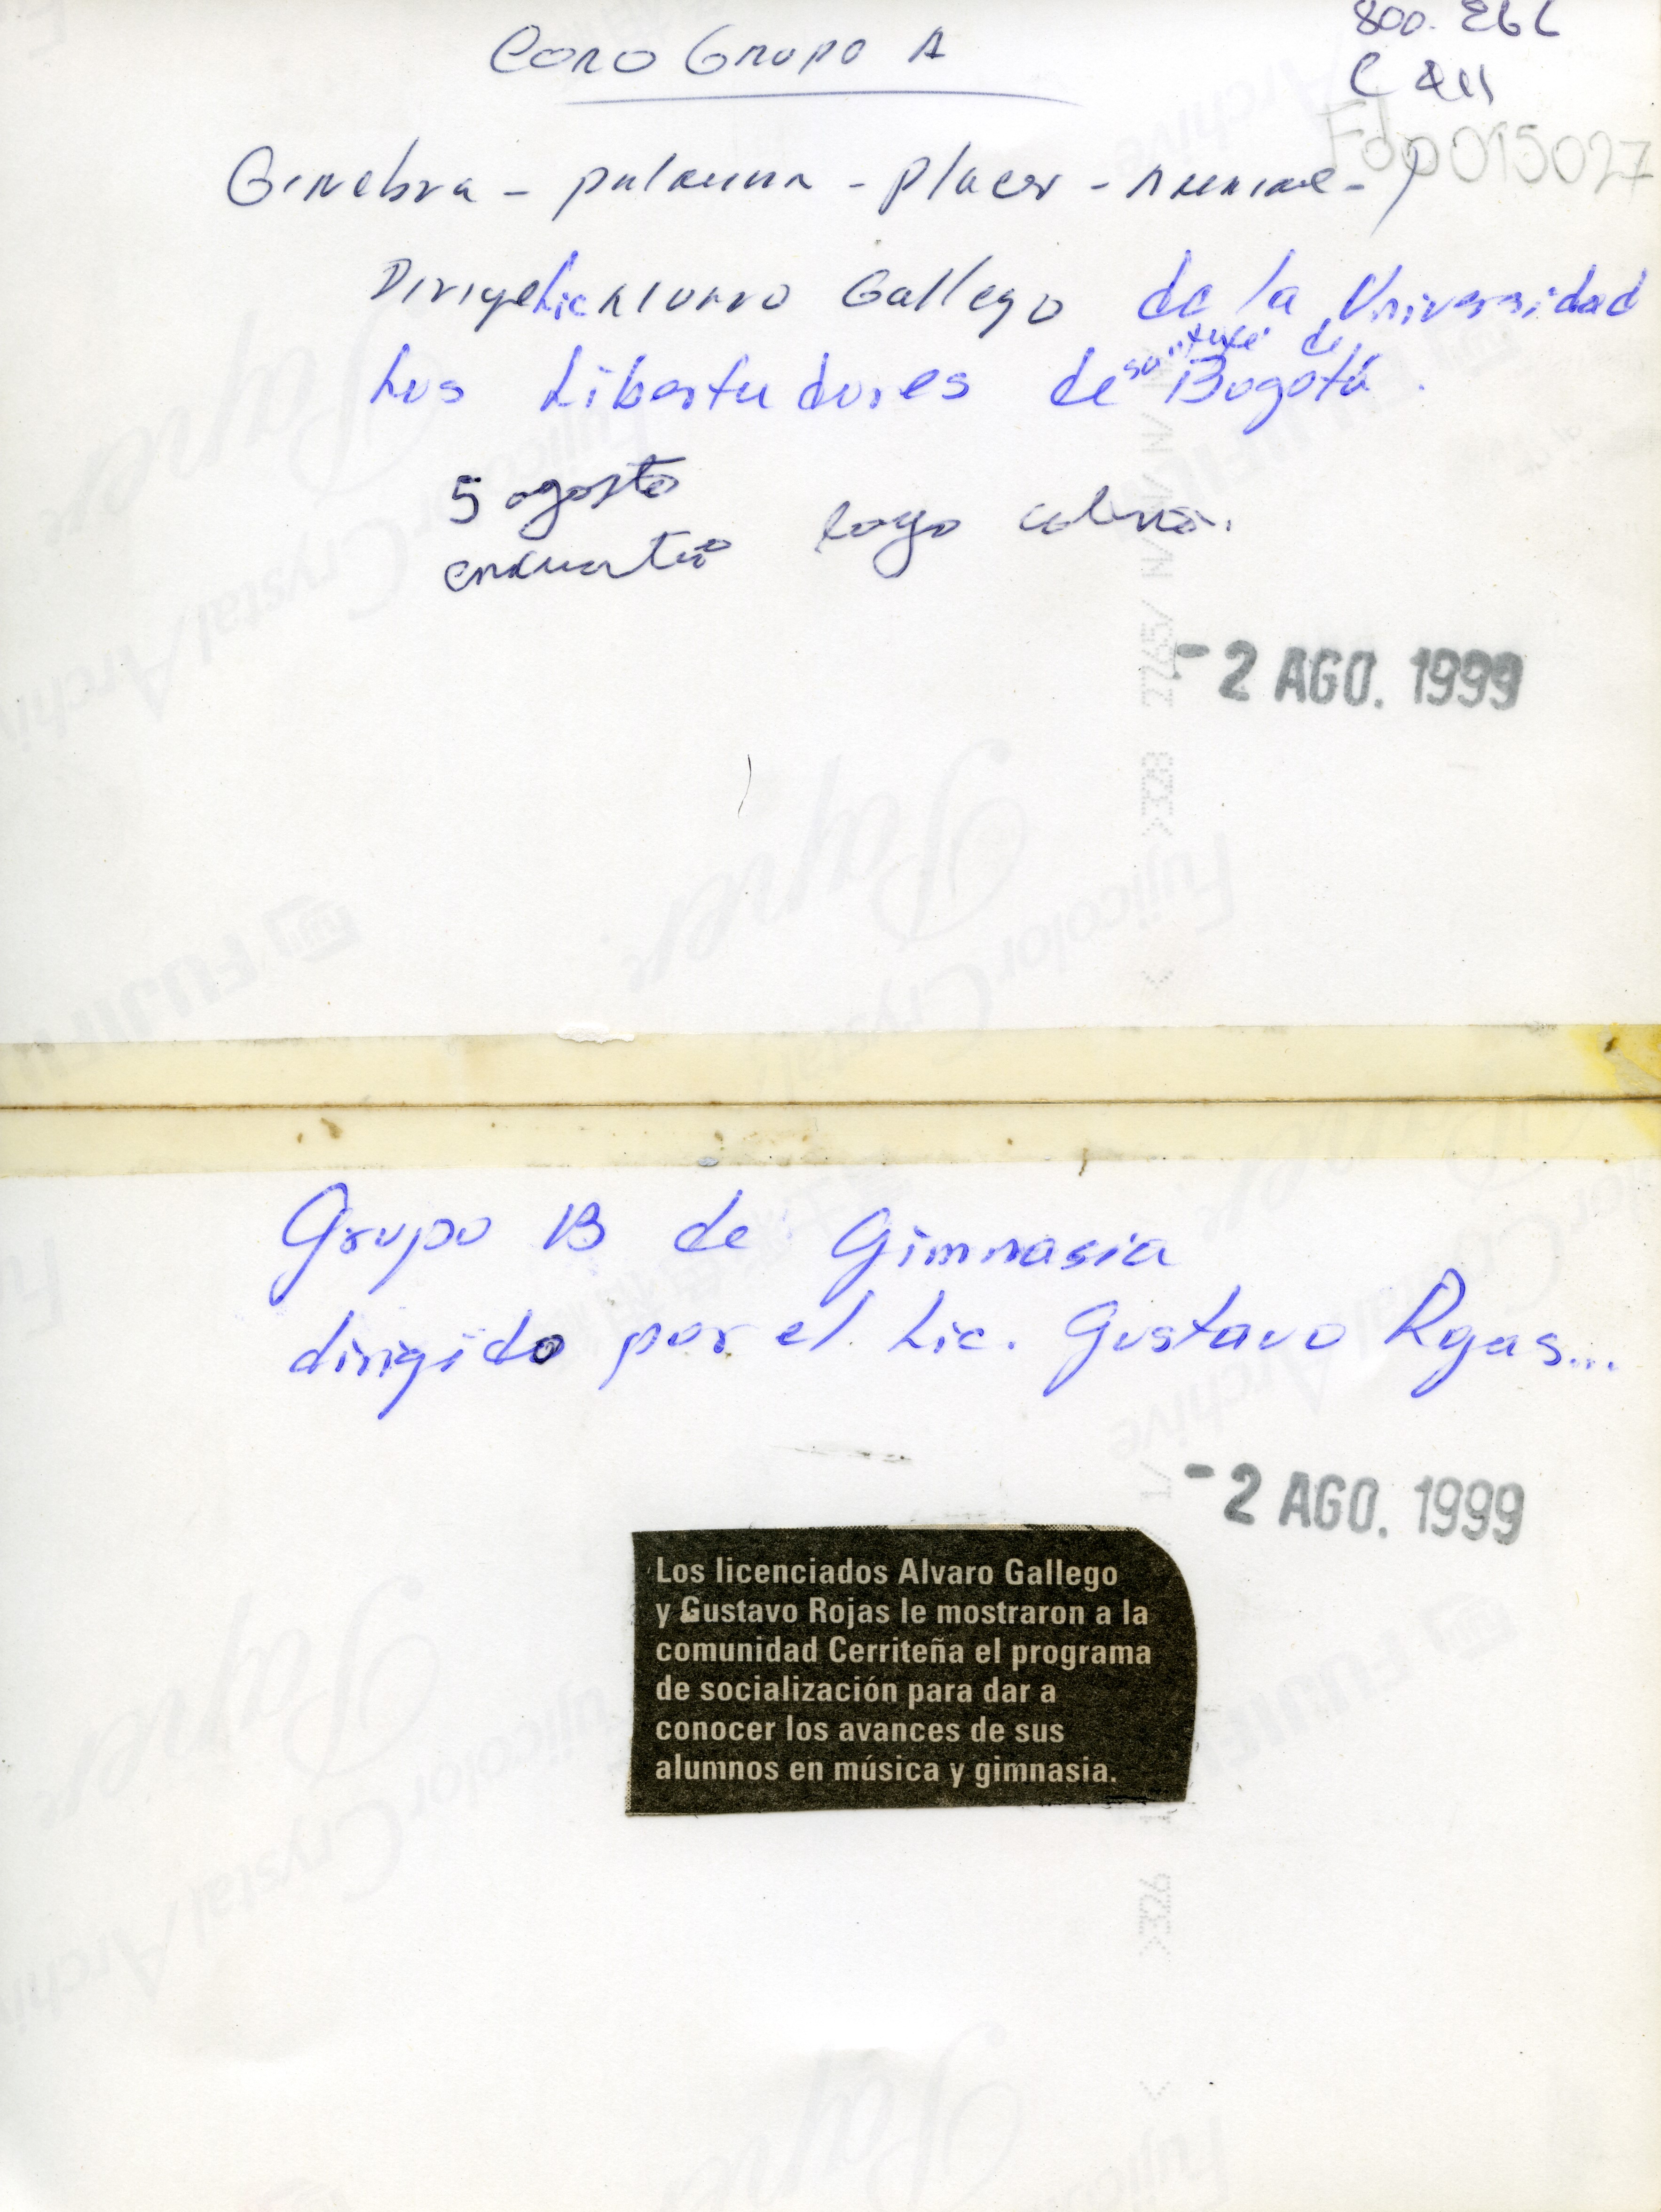 Coro Grupo A
800. E6L
C 211
Fdp015027
Ginebra - - Placer - -
Dirige Lic Alvaro Gallego de la Universidad
Los Libertadores de santafé de Bogotá.
5 agosto
encuentro lago calima.
-2 AGO. 1999
Grupo B de Gimnasia
dirigido por el Lic. Gustavo Rojas...
-2 AGO. 1999
Los licenciados Alvaro Gallego
y Gustavo Rojas le mostraron a la
comunidad Cerriteña el programa
de socialización para dar a
conocer los avances de sus
alumnos en música y gimnasia.